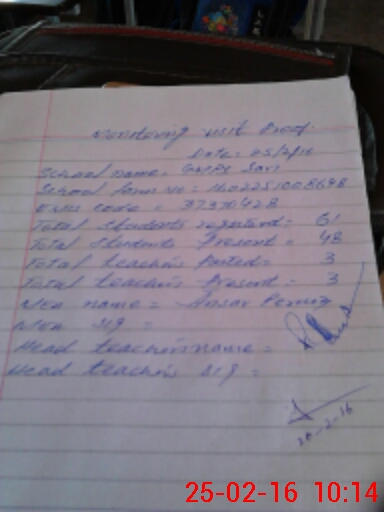 Monitoring visit Proof.
Date: 25/2/16
School name = GMPS Sari
School form No = 16022510086
EMIS code = 37370428
Total students registerd = 61
Total students Present = 48
Total teachers Posted = 3
Total teachers Present = 3
Mea name = Ansar Perviz
Mea sig =
Head teacher's name =
Head teacher's sig =
25-02-16 10:14